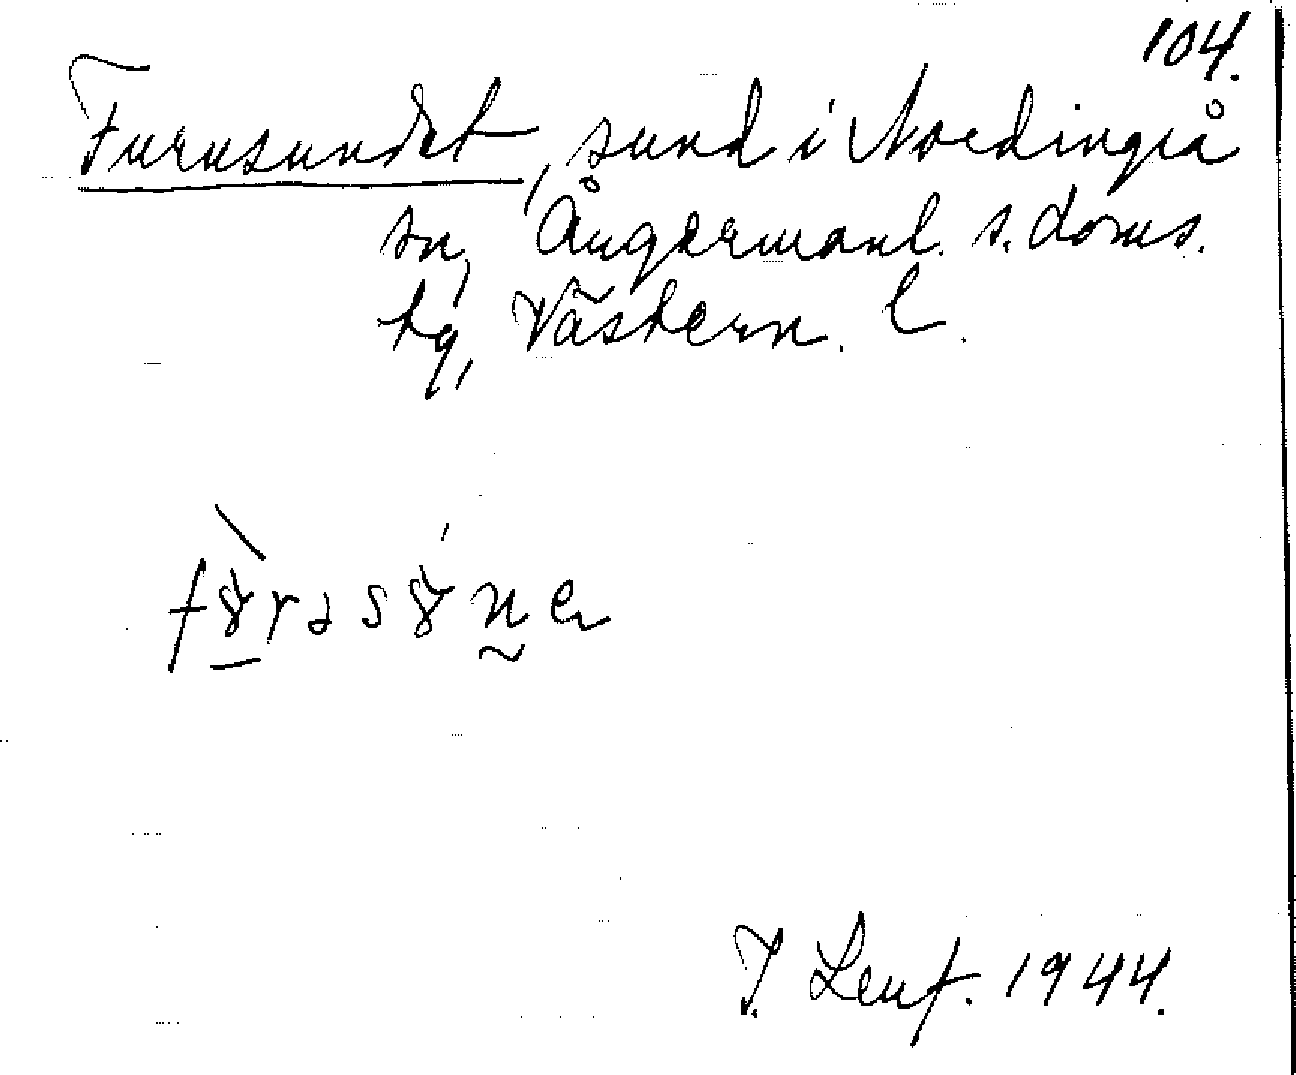 104.
Furusundet, sund i Nordingrå
sn, Ångermanl. s. doms.
tg, Västern. l.
J. Leuf. 1944.